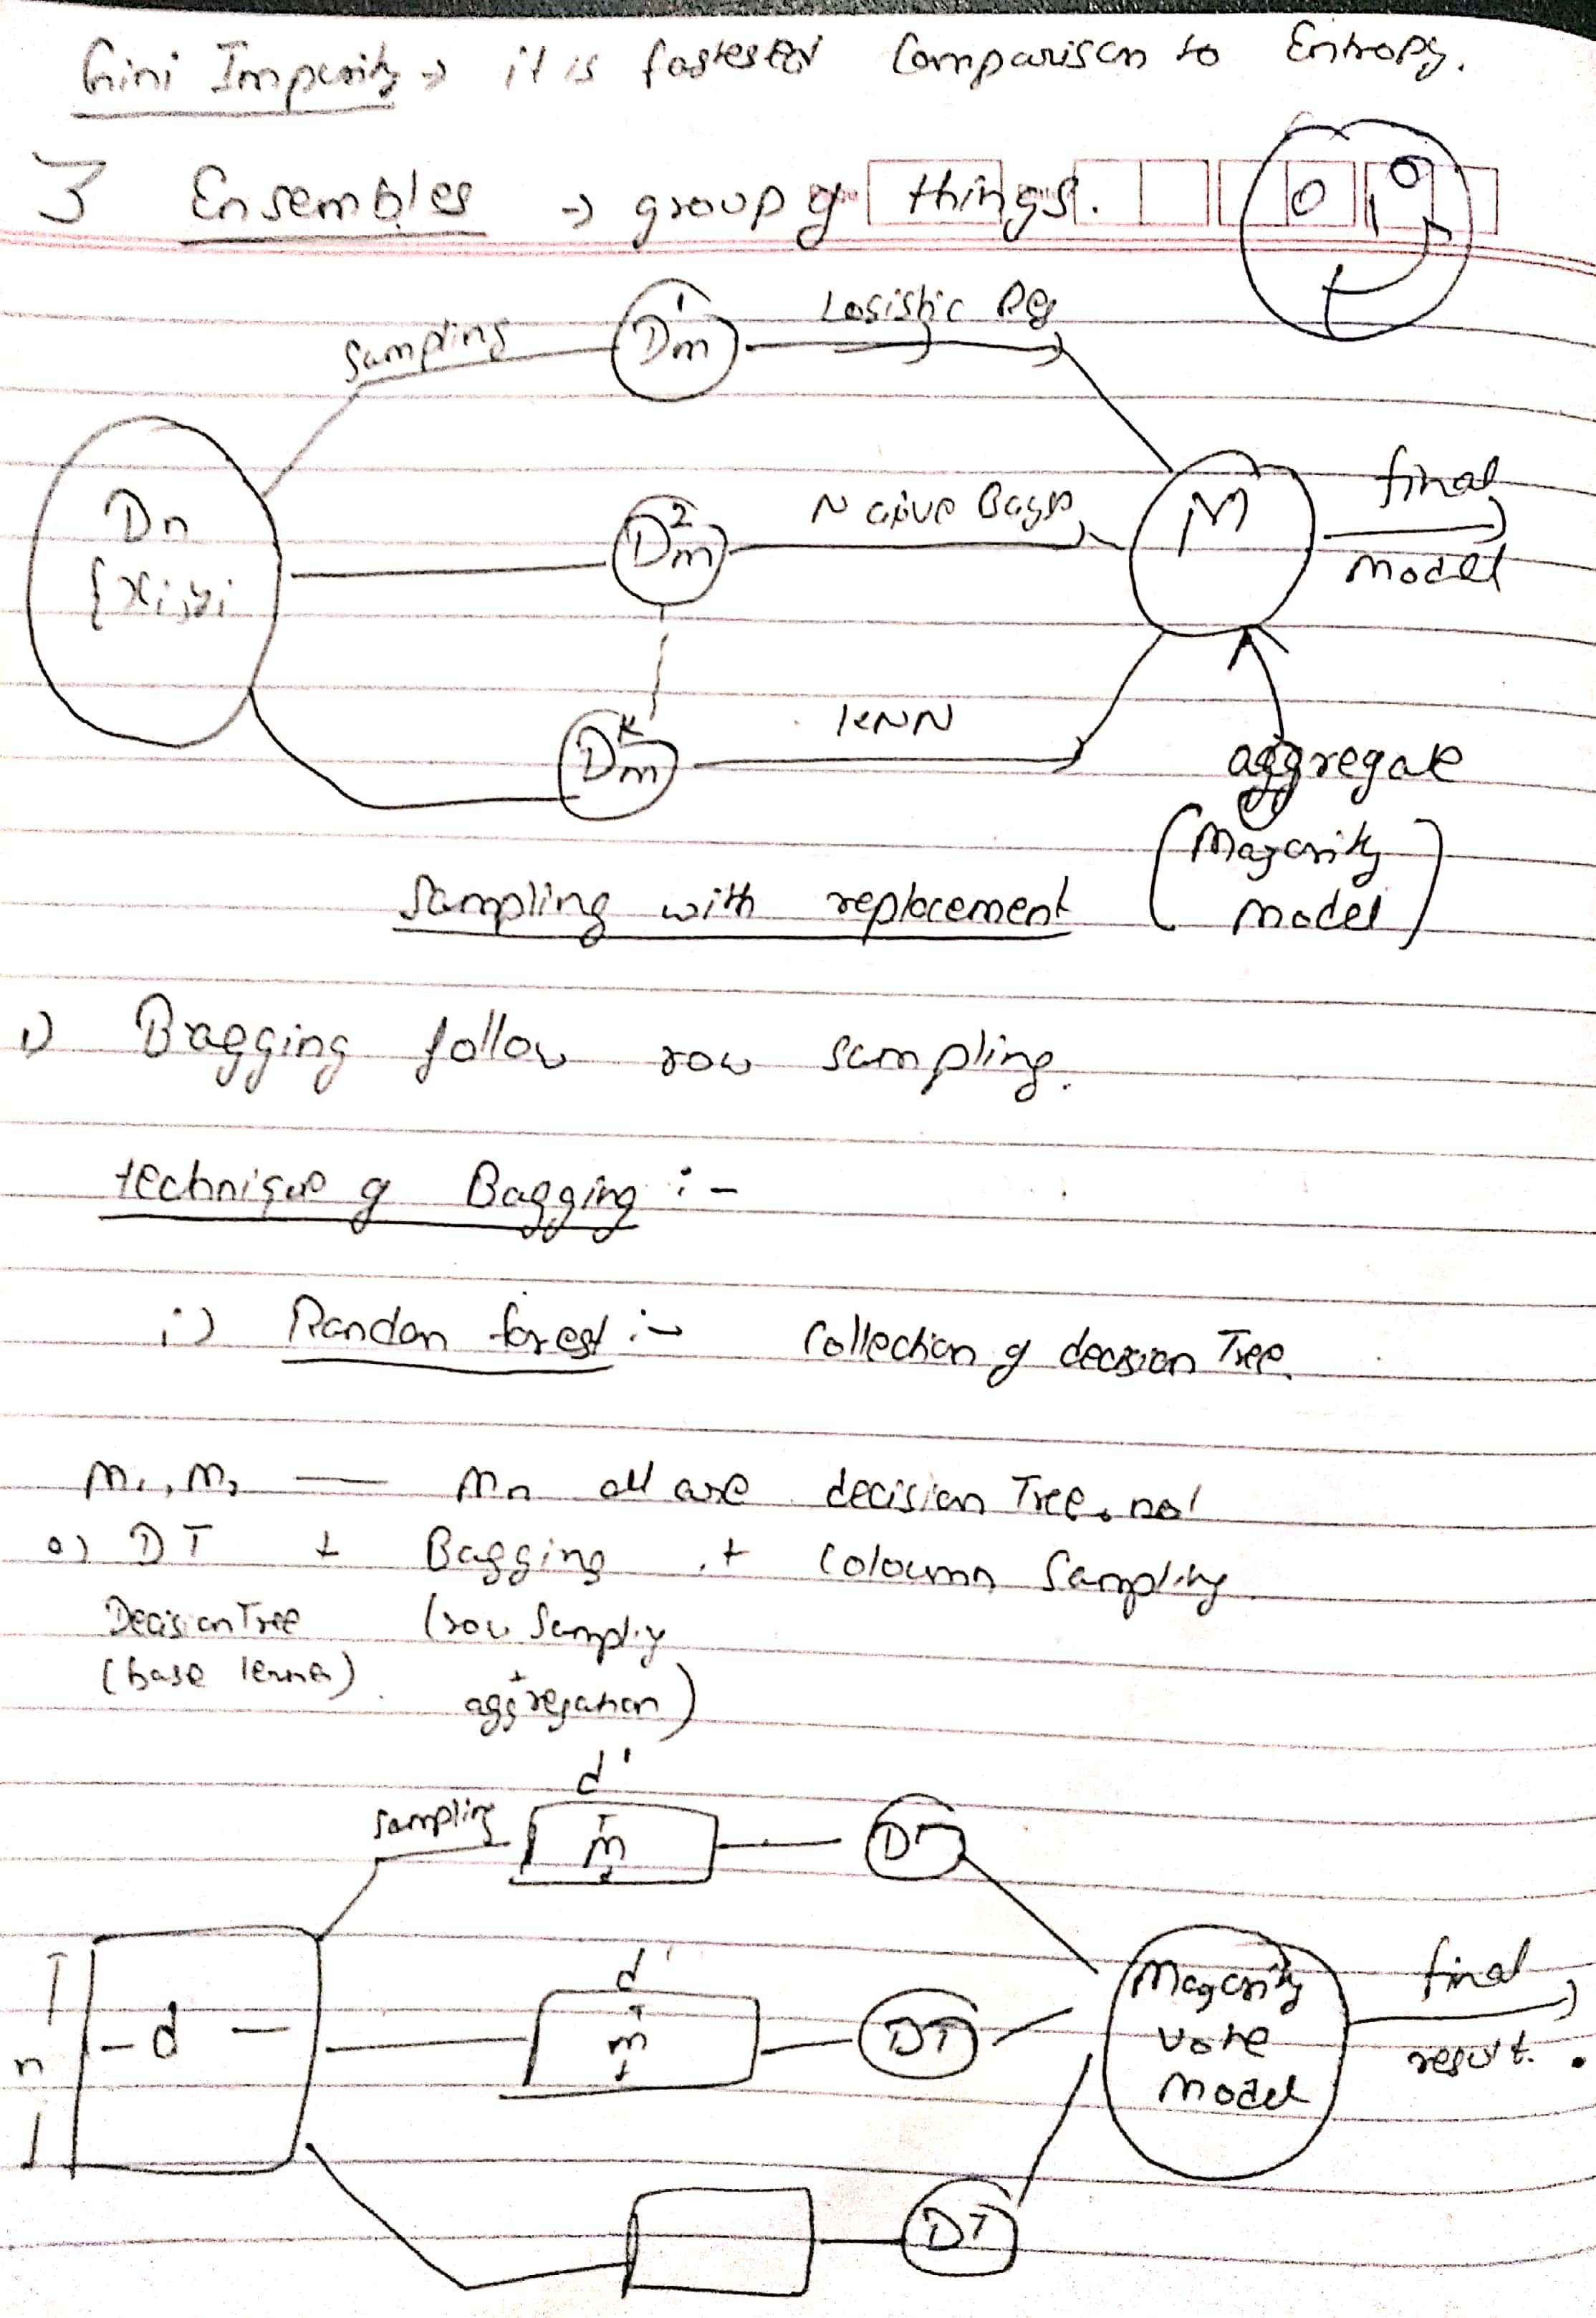 Gini Impurity → it is faster Comparison to Entropy.
3 Ensembles → group of things.
sampling
Dm1
Logistic Reg
Dn
{xi, yi
Dm2
Naive Bays
M
final
model
Dmk
KNN
aggregate
(Majority
Model)
Sampling with replacement
1) Bagging follow row sampling.
technique of Bagging :-
i) Random forest :- Collection of decision Tree.
M1, M2 — Mn all are decision Tree.
o) DT + Bagging + Coloumn Sampling
Decision Tree (row Sampling
(base lerner) + aggregation)
d'
sampling m DT
d'
n d m DT
Majority
Vote
Model
final
result.
DT